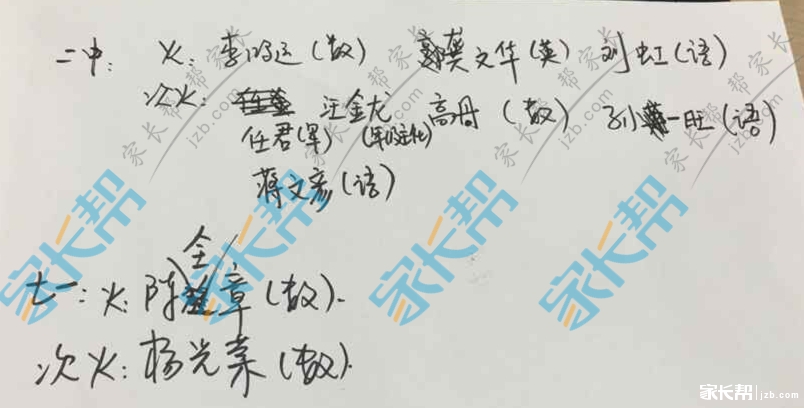 二中: 火: 李鸿运(数) 龚文华(英) 刘虹(语)
次火: 汪金龙 高丹(数) 孙一旺(语)
任君(军) (年级主任)
蒋文彦(语)
全
七一: 火: 陈章(数).
次火: 杨光荣(数).
家长帮
jzb.com
家长帮 | jzb.com